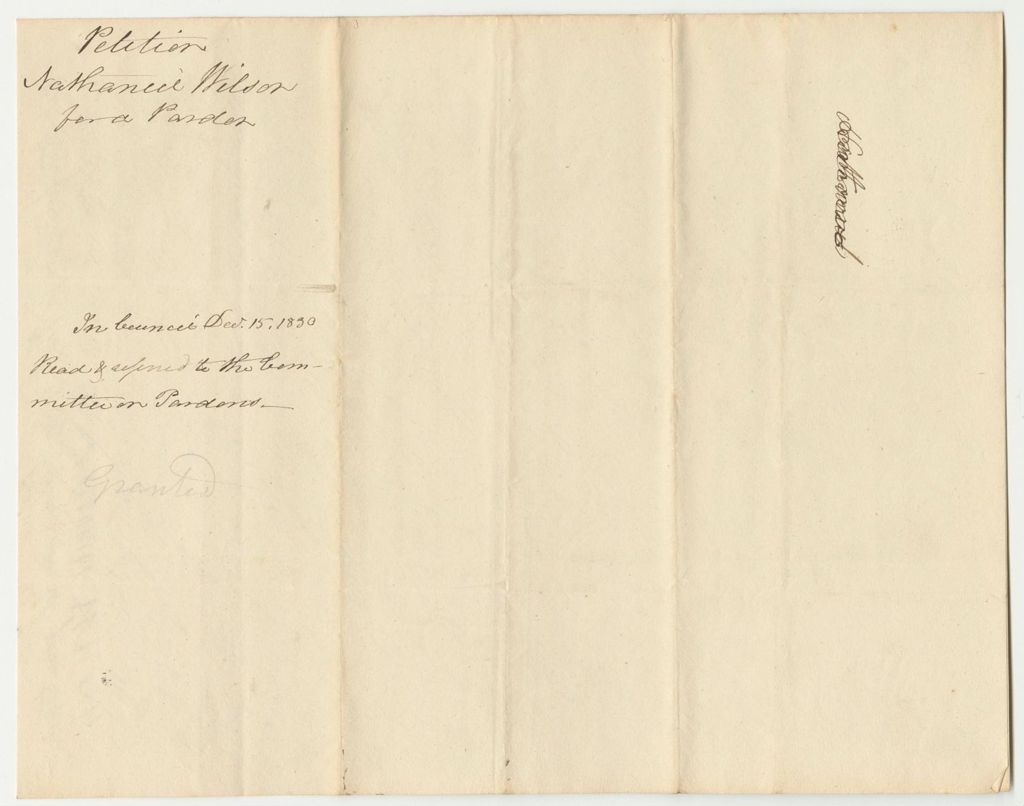 Petition
Nathaniel Wilson
for a Pardon
In Council Dec. 15, 1830
Read & referred to the Com-
mittee on Pardons.
Granted